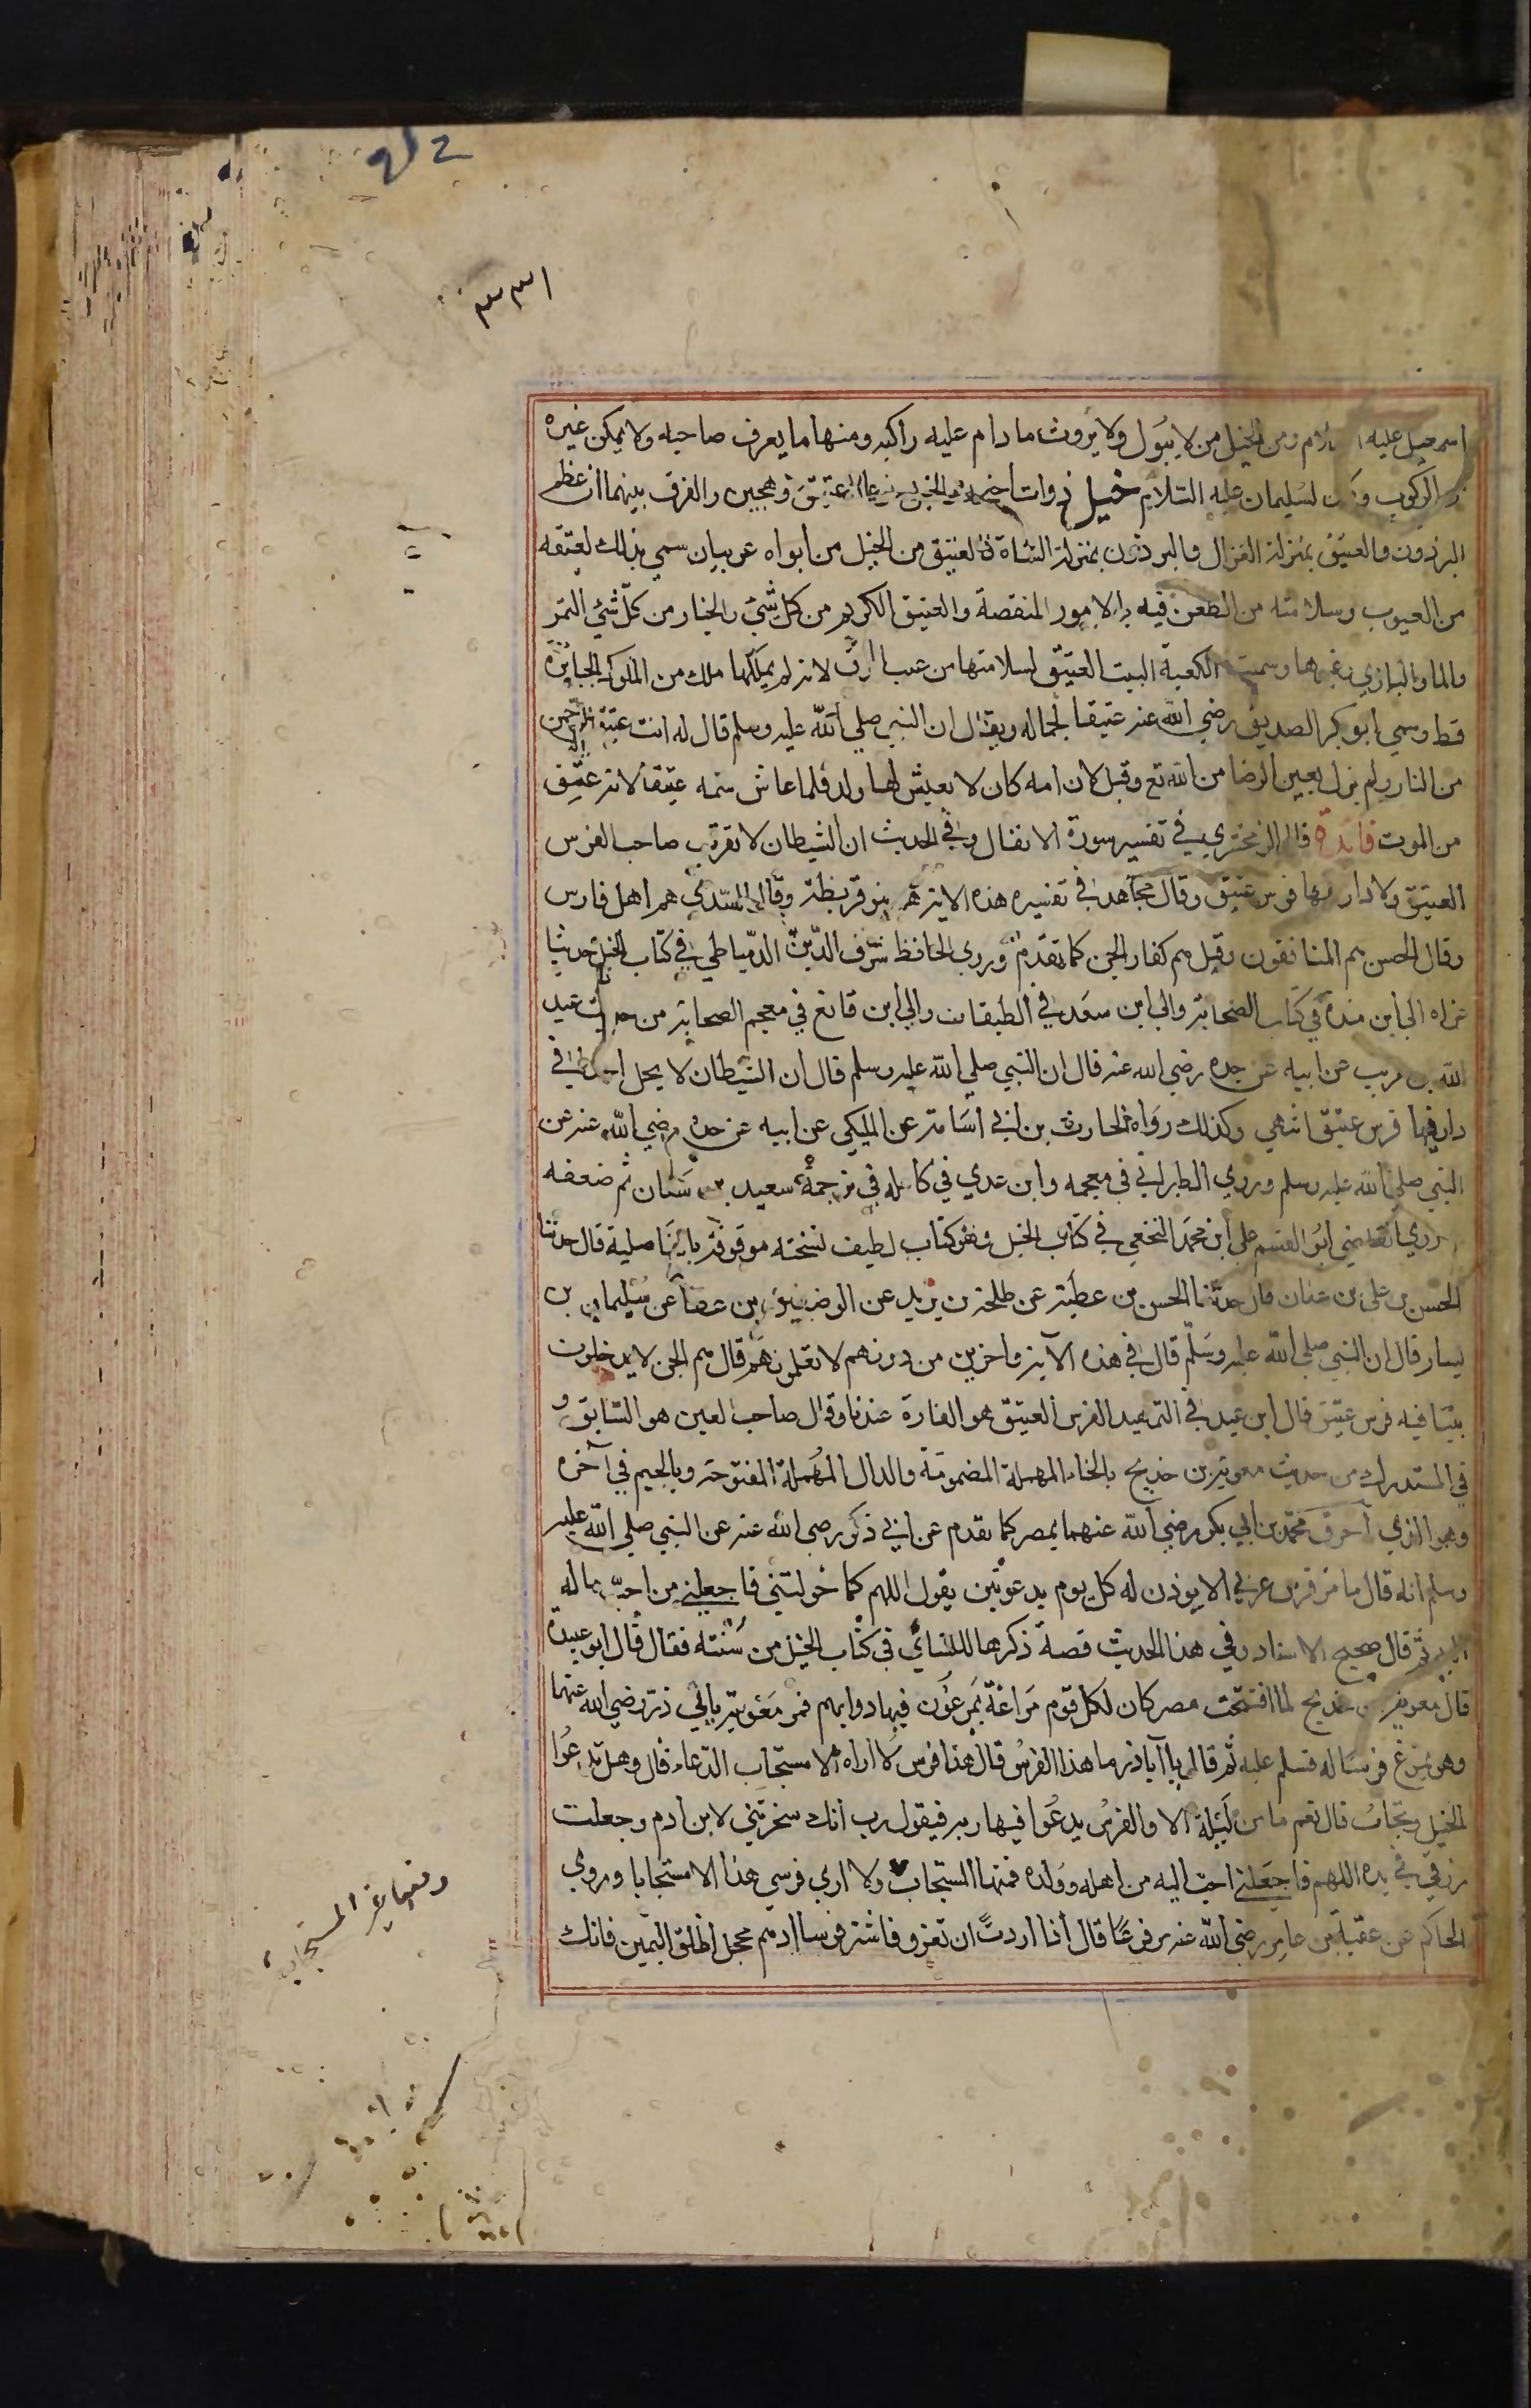 212
٣٣١
اسمعيل عليه السلام ومن الخيل من لا يبول ولا يروث ما دام عليه راكبه ومنها ما يعرف صاحبه ولا يمكن غيره
الركوب وكان لسليمان عليه السلام خيل ذوات اجنحة والخيل نوعان عتيق وهجين والفرق بينهما ان عظم
البرذون والعتيق بمنزلة الغزال والبرذون بمنزلة الشاة فالعتيق من الخيل من ابواه عربيان سمي بذلك لعتقه
من العيوب وسلامته من الطعن فيه بالامور المنقصة والعتيق الكريم من كل شيء والخيار من كل شيء التمر
والماء والبازي وغيرها وسميت الكعبة البيت العتيق لسلامتها من عيب الرق لانه لم يملكها ملك من الملوك الجبابرة
قط وسمي ابو بكر الصديق رضي الله عنه عتيقا لجماله ويقال ان النبي صلي الله عليه وسلم قال له انت عتيق الرحمن
من النار ولم يزل بعين الرضا من الله تع وقيل لان امه كان لا يعيش لها ولد فلما عاش سمته عتيقا لانه عتيق
من الموت فائدة قال الزمخشري في تفسير سورة الانفال وفي الحديث ان الشيطان لا يقرب صاحب الفرس
العتيق ولا دار فيها فرس عتيق وقال مجاهد في تفسيره هذه الاية هم بنو قريظة وقال السدي هم اهل فارس
وقال الحسن هم المنافقون وقيل هم كفار الجن كما تقدم وروى الحافظ شرف الدين الدمياطي في كتاب الخيل حديثا
عزاه الي ابن مندة في كتاب الصحابة والي ابن سعد في الطبقات والي ابن قانع في معجم الصحابة من حديث عبد
الله بن عريب عن ابيه عن جده رضي الله عنه قال ان النبي صلي الله عليه وسلم قال ان الشيطان لا يخبل احدا في
دار فيها فرس عتيق انتهي وكذلك رواه الحارث بن ابي اسامة عن المليكي عن ابيه عن جده رضي الله عنه عن
النبي صلي الله عليه وسلم وروي الطبراني في معجمه وابن عدي في كامله في ترجمة سعيد بن سنان ثم ضعفه
وروي القاضي ابو القسم علي ابن محمد النخعي في كتاب الخيل وهو كتاب لطيف نسخته موقوفة بالفاضلية قال حدثنا
الحسن بن علي بن عفان قال حدثنا الحسن بن عطية عن طلحة بن يزيد عن الوضين بن عطا عن سليمان بن
يسار قال ان النبي صلي الله عليه وسلم قال في هذه الآية واخرين من دونهم لا تعلمونهم قال هم الجن لا يدخلون
بيتا فيه فرس عتيق قال ابن عبد في التمهيد الفرس العتيق هو الفاره عندنا وقال صاحب العين هو السابق و
في المستدرك من حديث معوية بن خديج بالخاء المهملة المضمومة والدال المهملة المفتوحة وبالجيم في آخره
وهو الذي احرق محمد بن ابي بكر رضي الله عنهما بمصر كما تقدم عن ابي ذكر رضي الله عنه عن النبي صلي الله عليه
وسلم انه قال ما من فرس عربي الا يوذن له كل يوم بدعوتين يقول اللهم كما خولتني فاجعلني من احب ماله
اليه ثم قال صحيح الاسناد وفي هذا الحديث قصة ذكرها للنسائي في كتاب الخيل من سننه فقال قال ابو عبيدة
قال معوية بن خديج لما افتتحت مصر كان لكل قوم مراغة يمرغون فيها دوابهم فمر معوية بابي ذر رضي الله عنهما
وهو يمرغ فرسا له فسلم عليه ثم قال يا آباذر ما هذا الفرس قال هذا فرس لا اراه الا مستجاب الدعاء قال وهل تدعوا
الخيل وتجاب قال نعم ما من ليلة الا والفرس يدعوا فيها ربه فيقول رب انك سخرتني لابن ادم وجعلت
رزقي في يده اللهم فاجعلني احب اليه من اهله وولده فمنها المستجاب ولا اري فرسي هذا الا مستجابا وروي
الحاكم عن عقبة بن عامر رضي الله عنه مرفوعا قال اذا اردت ان تغزو فاشتر فرسا ادهم محجل اطلق اليمين فانك
ومنها غير المستجاب